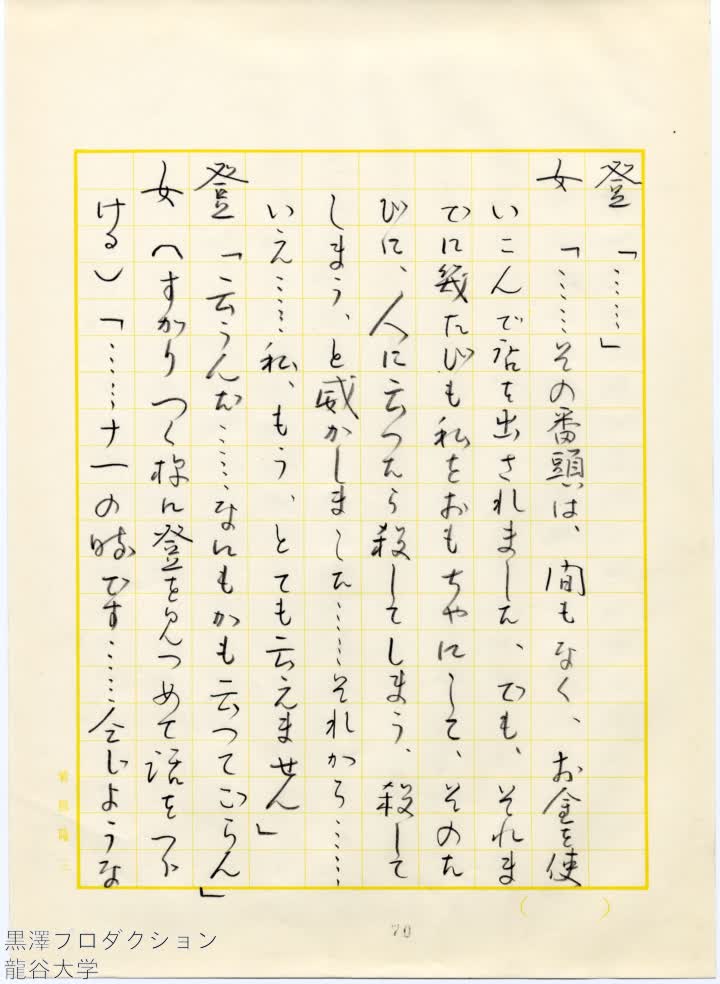 登「……」
女「……その番頭は、間もなく、お金を使
いこんで店を出されました、でも、それま
でに幾たびも私をおもちやにして、そのた
びに、人に云つたら殺してしまう、殺して
しまう、と威かしました……それから……
いえ……私、もう、とても云えません」
登「云うんだ……なにもかも云つてごらん」
女（すがりつく様に登を見つめて話をつづ
ける）「……十一の時です……今しような
70
黒澤プロダクション
龍谷大学